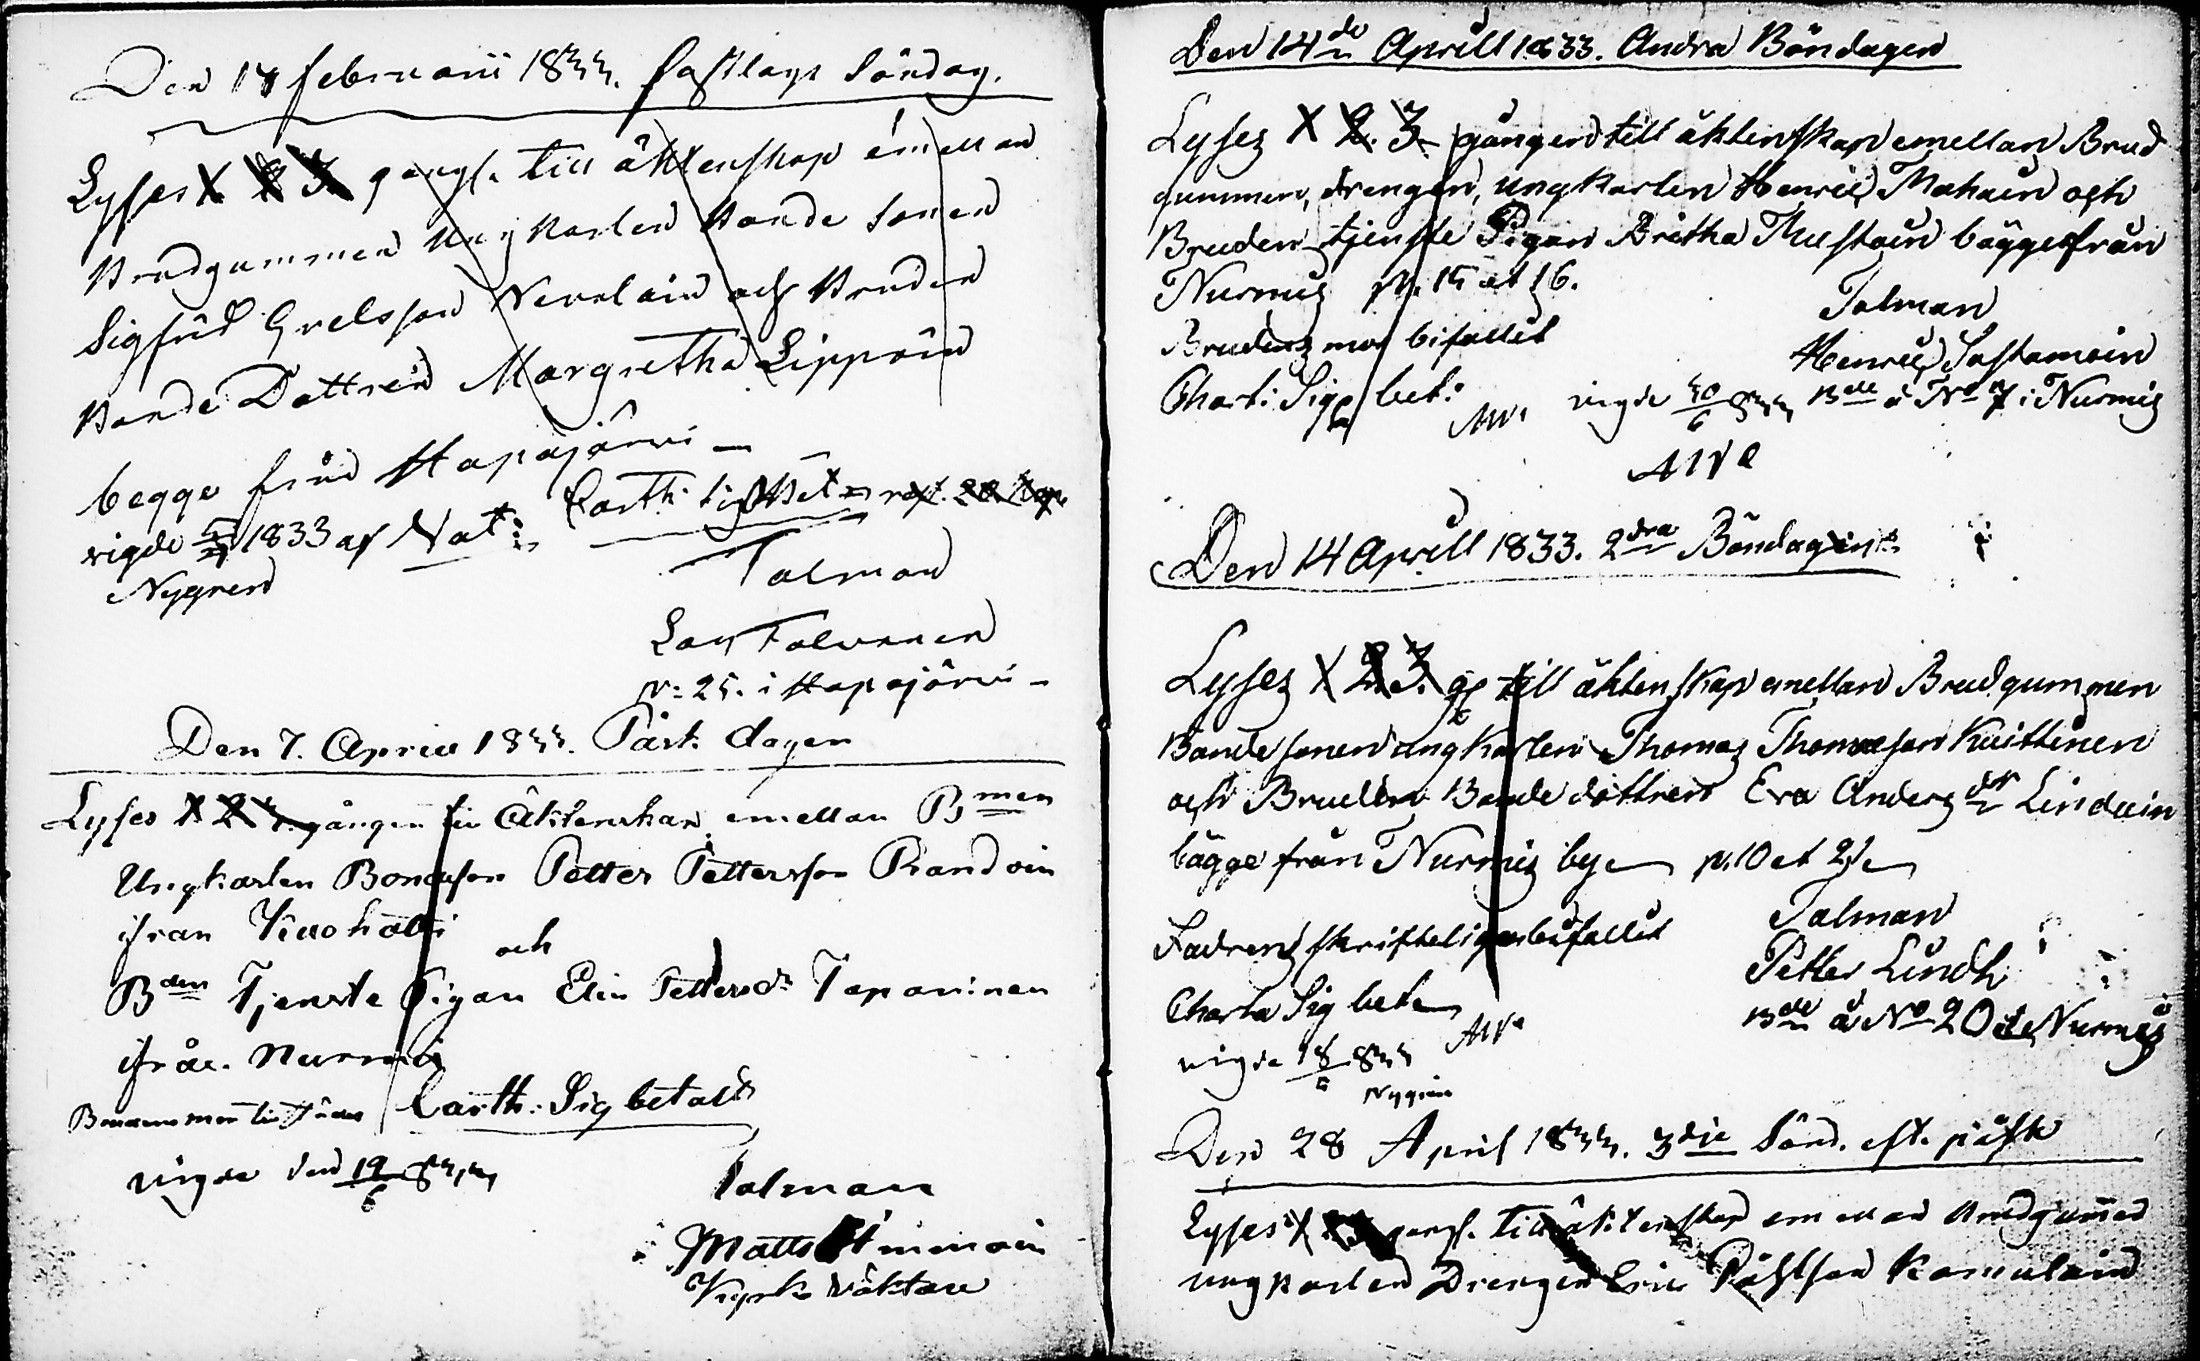 Den 17 februarii 1833. fastlags Söndag.
Lyses 1 2 3 gangs. till äktenskap emellan
Brudgummen Ungkarlen Bonde Sonen
Sigfrid Grelsson Nevalain och Bruden
Bonde Dottren Margretha Lippoin
begge från Hapajärvi
Carth. Sig bet
vigde 1833 af Nat:
Nygren
Talman
Lars Tolvanen
N: 25. i Hapajärvi
Den 7. April 1833. Påsk dagen
Lyses 1 2 3. gången till Äktenskap emellan Bmen
Ungkarlen Bondeson Petter Pettersson Randoin
ifran Kuohatti
och
Bden Tjenste Pigan Elin Pettersdr Taponinen
ifrån Nurmis
Carth. Sig betalt
vigde den 19/6 833
Talman
Matts Timoin
Kyrko väktare
Den 14de Aprill 1833. Andra Böndagen
Lyses 1 2. 3 gången till äktenskap emellan Brud
gummen, drengen, ungkarlen Henric Mahoin och
Bruden tjenste Pigan Britha Mustoin bägge från
Nurmis N. 15 et 16.
Brudens mor bifallit
Talman
Henric Sastamoin
Chart: Sig bet:
vigde 30/6 833
Bde å No 7 i Nurmis
Den 14 Aprill 1833. 2dra Böndagen
Lyses 1. 2. 3. gg till äktenskap emellan Brudgummen
Bonde sonen ungkarlen Thomas Thomasson Kuittinen
och Bruden Bonde dottren Eva Andersdr Lindoin
bägge från Nurmis by N. 10 et 21
Fadrens skrifteliga bifallit
Talman
Petter Lindh
Charta Sig bet
Bde å No 20 i Nurmis
vigde 18 833
Nygren
Den 28 April 1833. 3die Sönd. eft. påsk
Lyses 1 2 3 gangs. till äktenskap emellan Brudgummen
ungkarlen Drengen Eric Påhlson Romulain